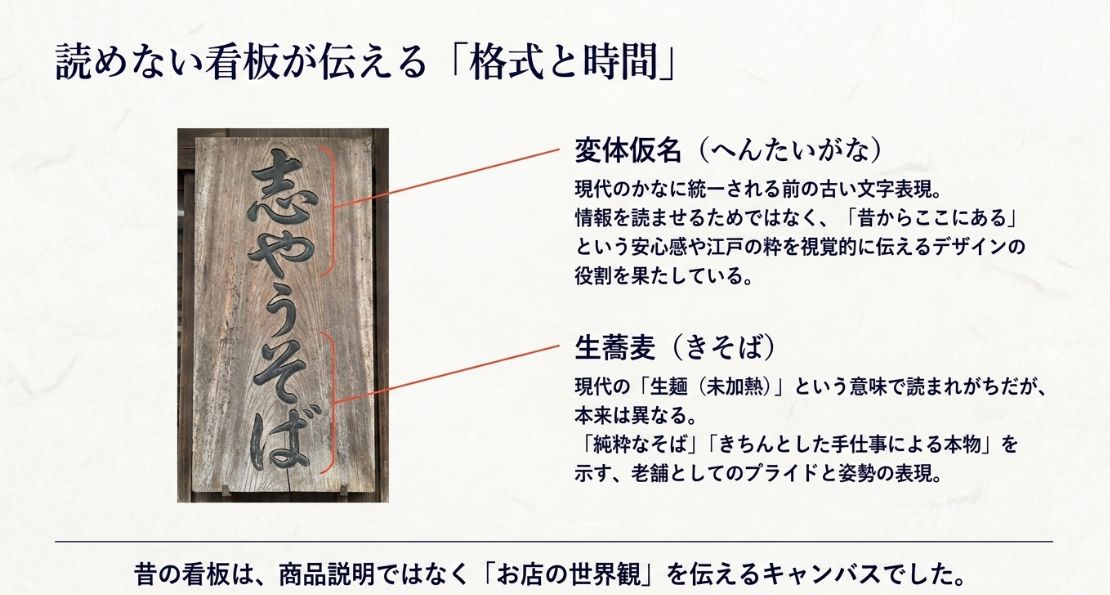 読めない看板が伝える「格式と時間」
志やうそば
変体仮名（へんたいがな）
現代のかなに統一される前の古い文字表現。
情報を読ませるためではなく、「昔からここにある」
という安心感や江戸の粋を視覚的に伝えるデザインの
役割を果たしている。
生蕎麦（きそば）
現代の「生麺（未加熱）」という意味で読まれがちだが、
本来は異なる。
「純粋なそば」「きちんとした手仕事による本物」を
示す、老舗としてのプライドと姿勢の表現。
昔の看板は、商品説明ではなく「お店の世界観」を伝えるキャンバスでした。